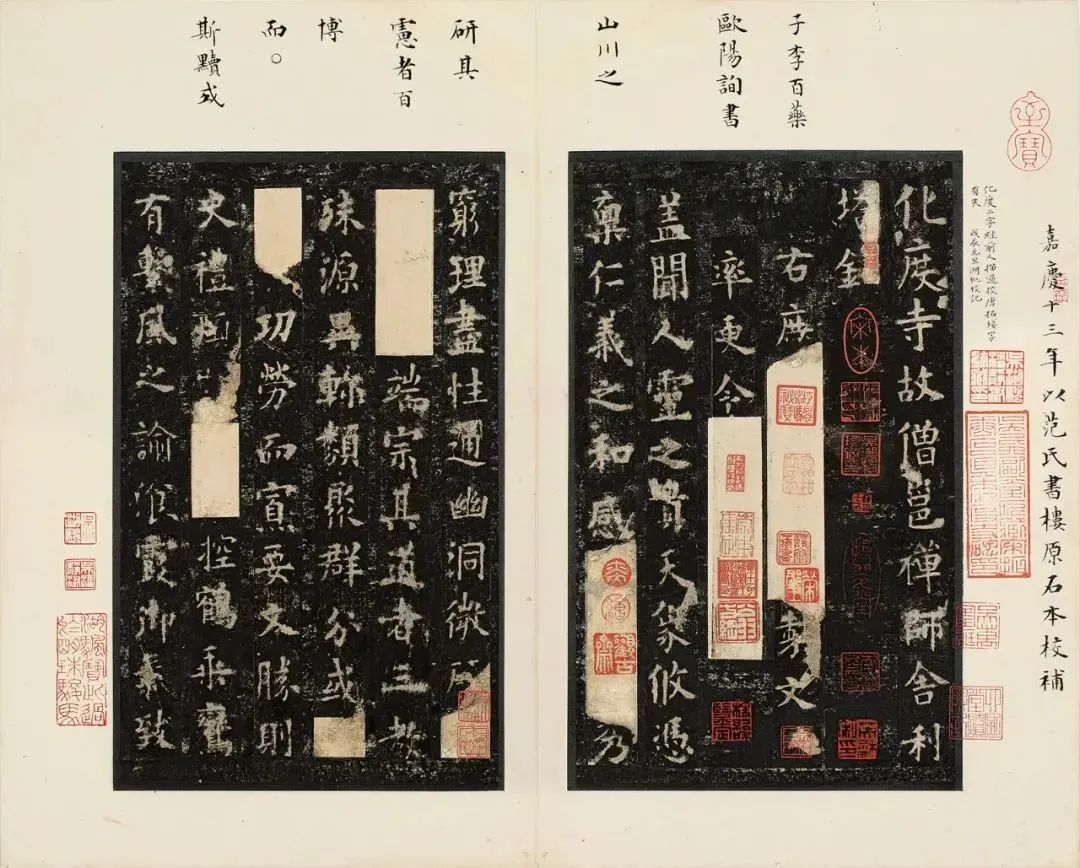 嘉慶十三年以范氏書樓原石本校補
化度二字經前人描過校唐拓殘字
有失 戊辰元旦湖帆校記
子李百藥
歐陽詢書
山川之
化度寺故僧邕禪師舍利
塔銘
右庶 製文
率更令
蓋聞人靈之貴天象攸憑
稟仁義之和感 乃
研其
憲者百
博
而。
斯黷或
窮理盡性通幽洞微
端宗其道者三教
殊源異軫類聚群分或
功勞而寡要文勝則
史禮 控鶴乘鸞
有繫風之諭飡霞御氣致